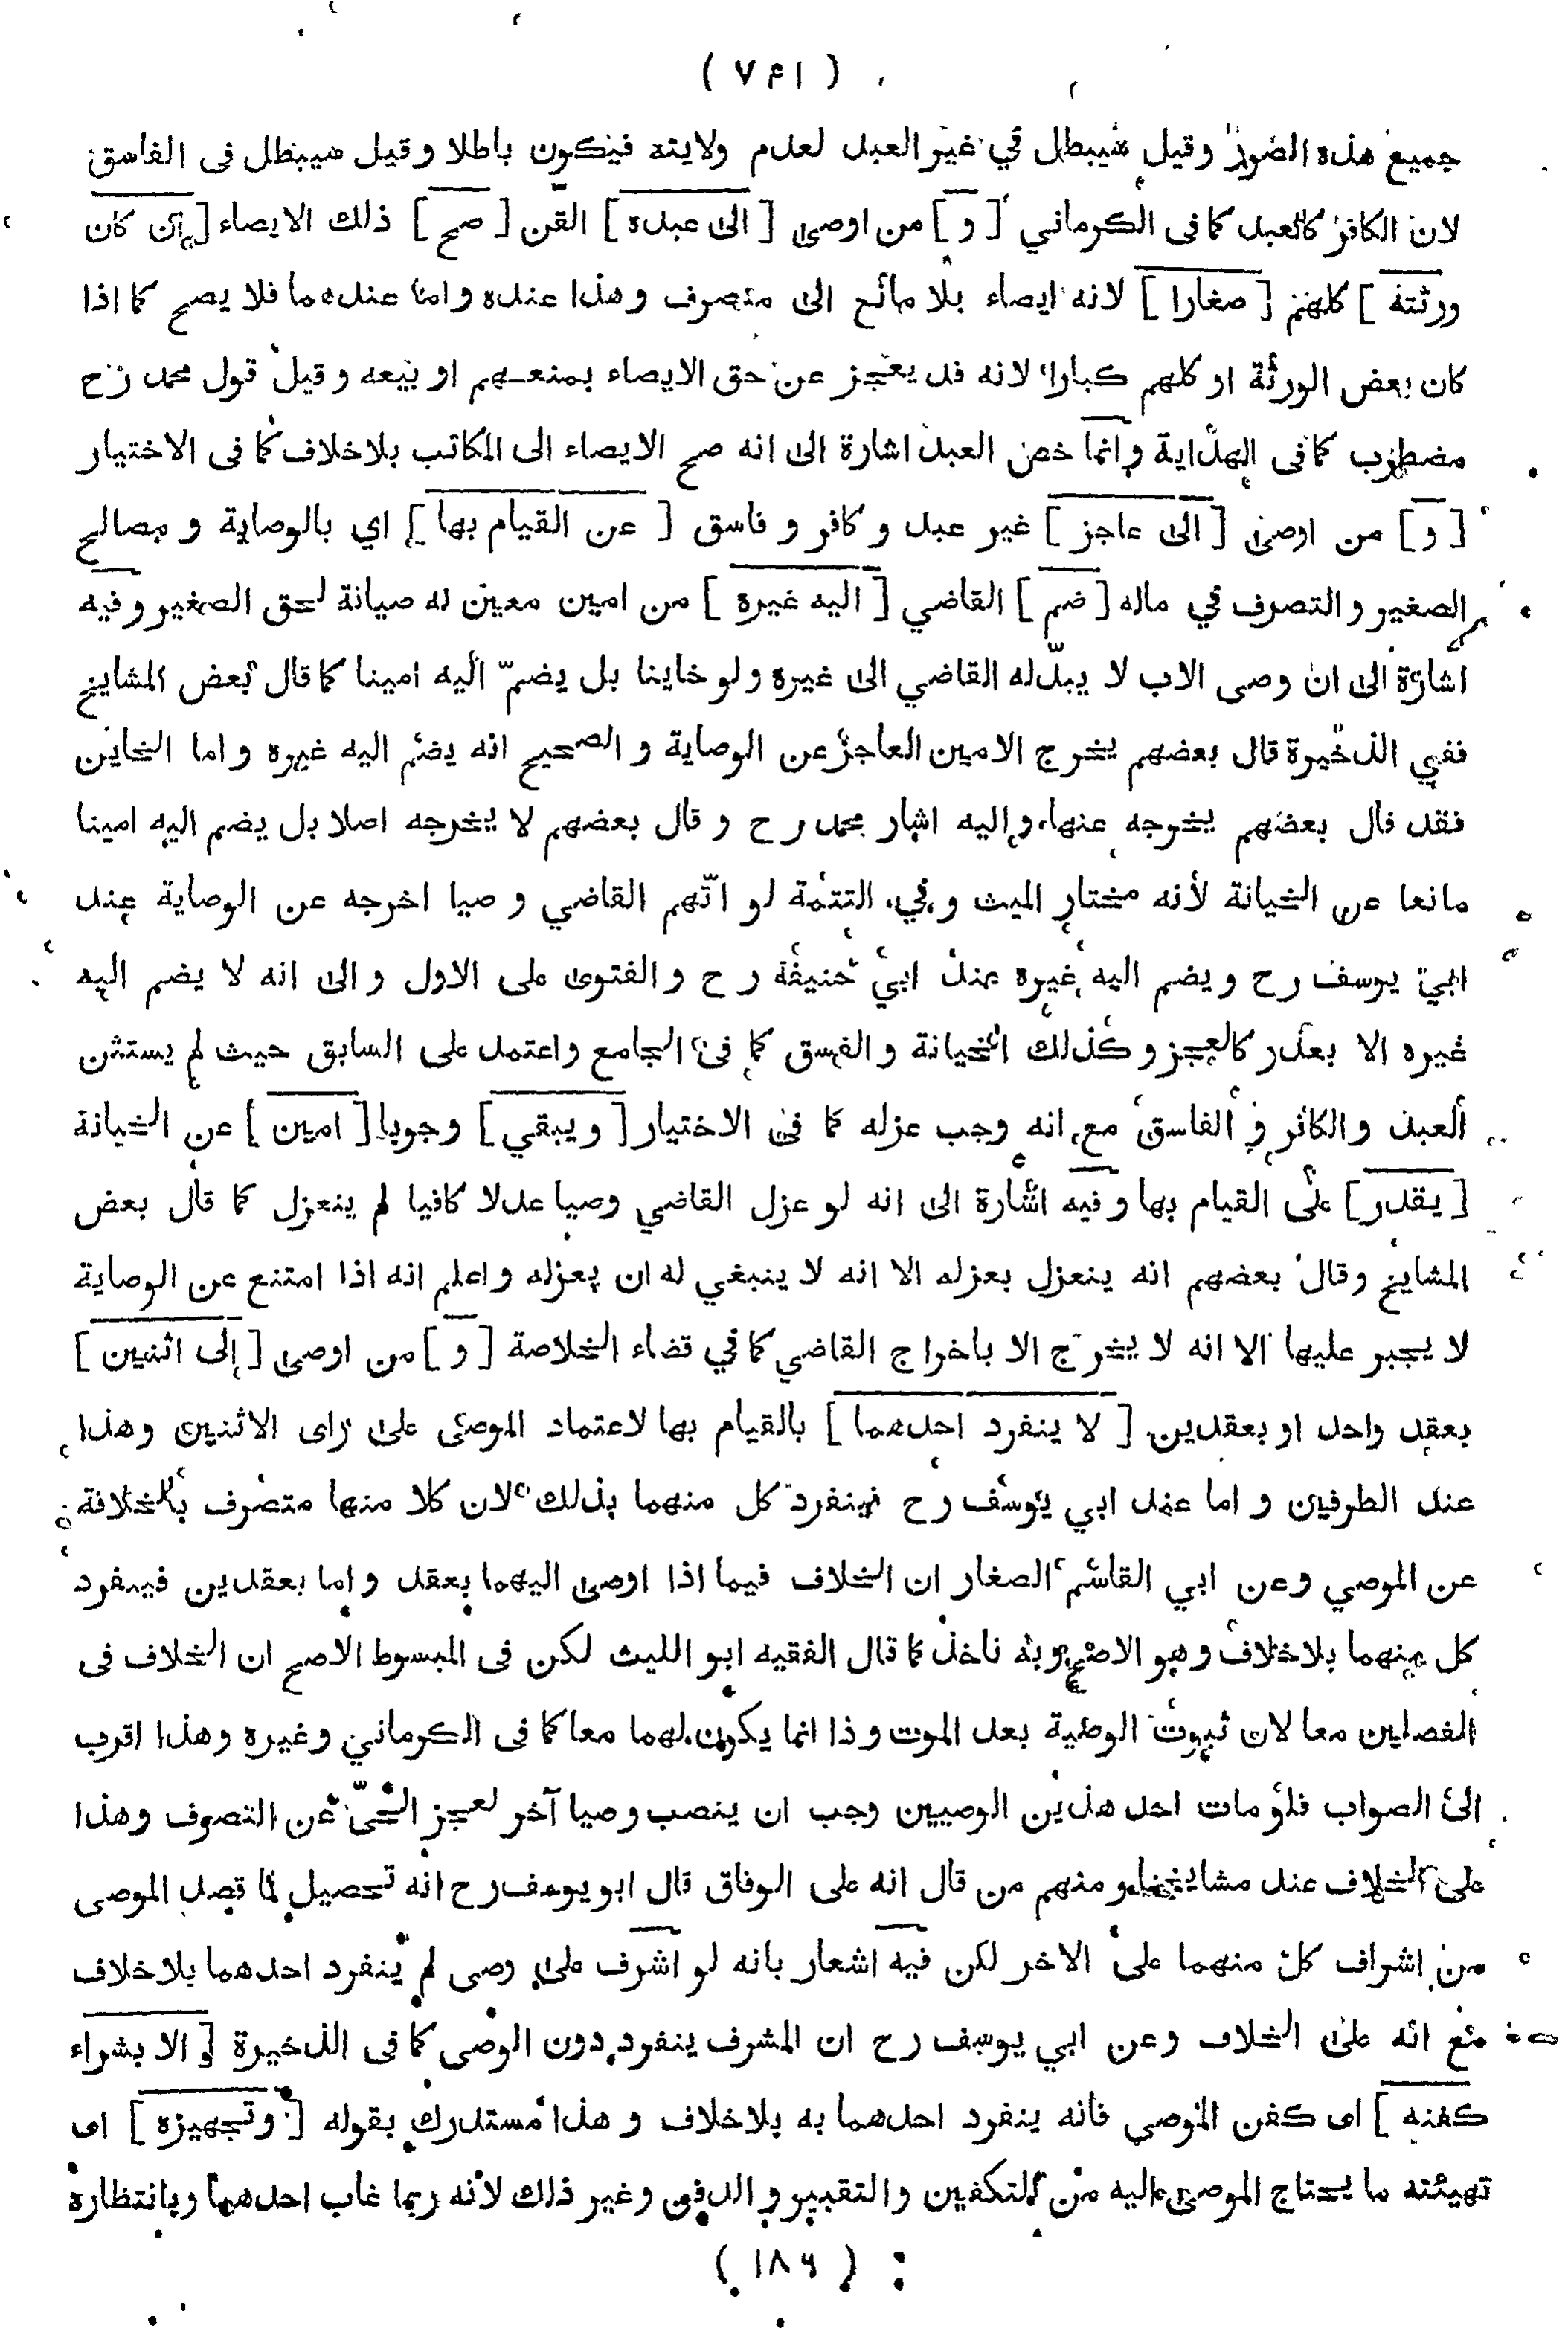 ( ٧٤١ )
جميع هذه الصور وقيل سيبطل في غير العبد لعدم ولايته فيكون باطلا وقيل سيبطل فى الفاسق
لان الكافر كالعبد كما فى الكرماني [ و ] من اوصى [ الى عبده ] القن [ صح ] ذلك الايصاء [ ان كان
ورثته ] كلهم [ صغارا ] لانه ايصاء بلا مانع الى متصرف وهذا عنده واما عندهما فلا يصح كما اذا
كان بعض الورثة او كلهم كبارا لانه قد يعجز عن حق الايصاء بمنعهم او بيعه وقيل قول محمد رح
مضطرب كما فى الهداية وانما خص العبد اشارة الى انه صح الايصاء الى المكاتب بلا خلاف كما فى الاختيار
[ و ] من اوصى [ الى عاجز ] غير عبد و كافر و فاسق [ عن القيام بها ] اي بالوصاية و مصالح
الصغير و التصرف في ماله [ ضم ] القاضي [ اليه غيره ] من امين معين له صيانة لحق الصغير وفيه
اشارة الى ان وصى الاب لا يبدله القاضي الى غيره ولو خاينا بل يضمّ اليه امينا كما قال بعض المشايخ
ففي الذخيرة قال بعضهم يخرج الامين العاجز عن الوصاية و الصحيح انه يضم اليه غيره و اما الخاين
فقد قال بعضهم يخرجه عنها و اليه اشار محمد رح و قال بعضهم لا يخرجه اصلا بل يضم اليه امينا
مانعا عن الخيانة لأنه مختار الميت و في التتمة لو اتّهم القاضي وصيا اخرجه عن الوصاية عند
ابي يوسف رح ويضم اليه غيره عند ابي حنيفة رح والفتوى على الاول و الى انه لا يضم اليه
غيره الا بعذر كالعجز وكذلك الخيانة و الفسق كما فى الجامع واعتمد على السابق حيث لم يستثن
العبد والكافر و الفاسق مع انه وجب عزله كما فى الاختيار [ ويبقي ] وجوبا [ امين ] عن الخيانة
[ يقدر ] على القيام بها وفيه اشارة الى انه لو عزل القاضي وصيا عدلا كافيا لم ينعزل كما قال بعض
المشايخ وقال بعضهم انه ينعزل بعزله الا انه لا ينبغي له ان يعزله واعلم انه اذا امتنع عن الوصاية
لا يجبر عليها الا انه لا يخرج الا باخراج القاضي كما في قضاء الخلاصة [ و ] من اوصى [ إلى اثنين ]
بعقد واحد او بعقدين [ لا ينفرد احدهما ] بالقيام بها لاعتماد الموصى على راى الاثنين وهذا
عند الطرفين و اما عند ابي يوسف رح فينفرد كل منهما بذلك لان كلا منها متصرف بالخلافة
عن الموصي وعن ابي القاسم الصغار ان الخلاف فيما اذا اوصى اليهما بعقد و اما بعقدين فينفرد
كل منهما بلا خلاف وهو الاصح وبه ناخذ كما قال الفقيه ابو الليث لكن فى المبسوط الاصح ان الخلاف فى
الفصلين معا لان ثبوت الوصية بعد الموت وذا انما يكون لهما معا كما فى الكرماني وغيره وهذا اقرب
الى الصواب فلو مات احد هذين الوصيين وجب ان ينصب وصيا آخر لعجز الحىّ عن التصرف وهذا
على الخلاف عند مشايخنا و منهم من قال انه على الوفاق قال ابو يوسف رح انه تحصيل لما قصد الموصى
من اشراف كل منهما على الاخر لكن فيه اشعار بانه لو اشرف على وصى لم ينفرد احدهما بلا خلاف
مع انه على الخلاف وعن ابي يوسف رح ان المشرف ينفرد دون الوصى كما فى الذخيرة [ و الا بشراء
كفنه ] اى كفن الموصي فانه ينفرد احدهما به بلا خلاف و هذا مستدرك بقوله [ وتجهيزه ] اى
تهيئته ما يحتاج الموصى اليه من التكفين والتقبير و الدفن وغير ذلك لأنه ربما غاب احدهما وبانتظاره
( ١٨٦ )